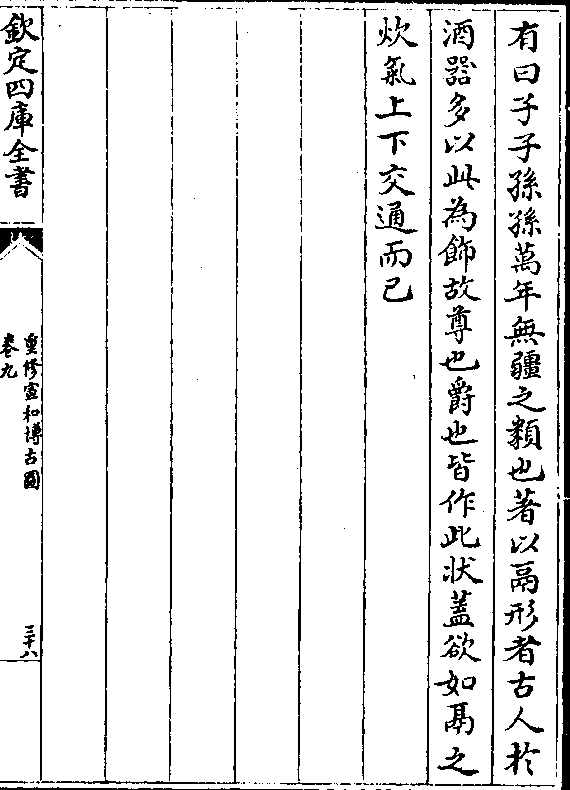 有曰子子孫孫萬年無疆之類也著以鬲形者古人於
酒器多以此為飾故尊也爵也皆作此狀蓋欲如鬲之
炊氣上下交通而已
欽定四庫全書
重修宣和博古圖
卷九
三十八